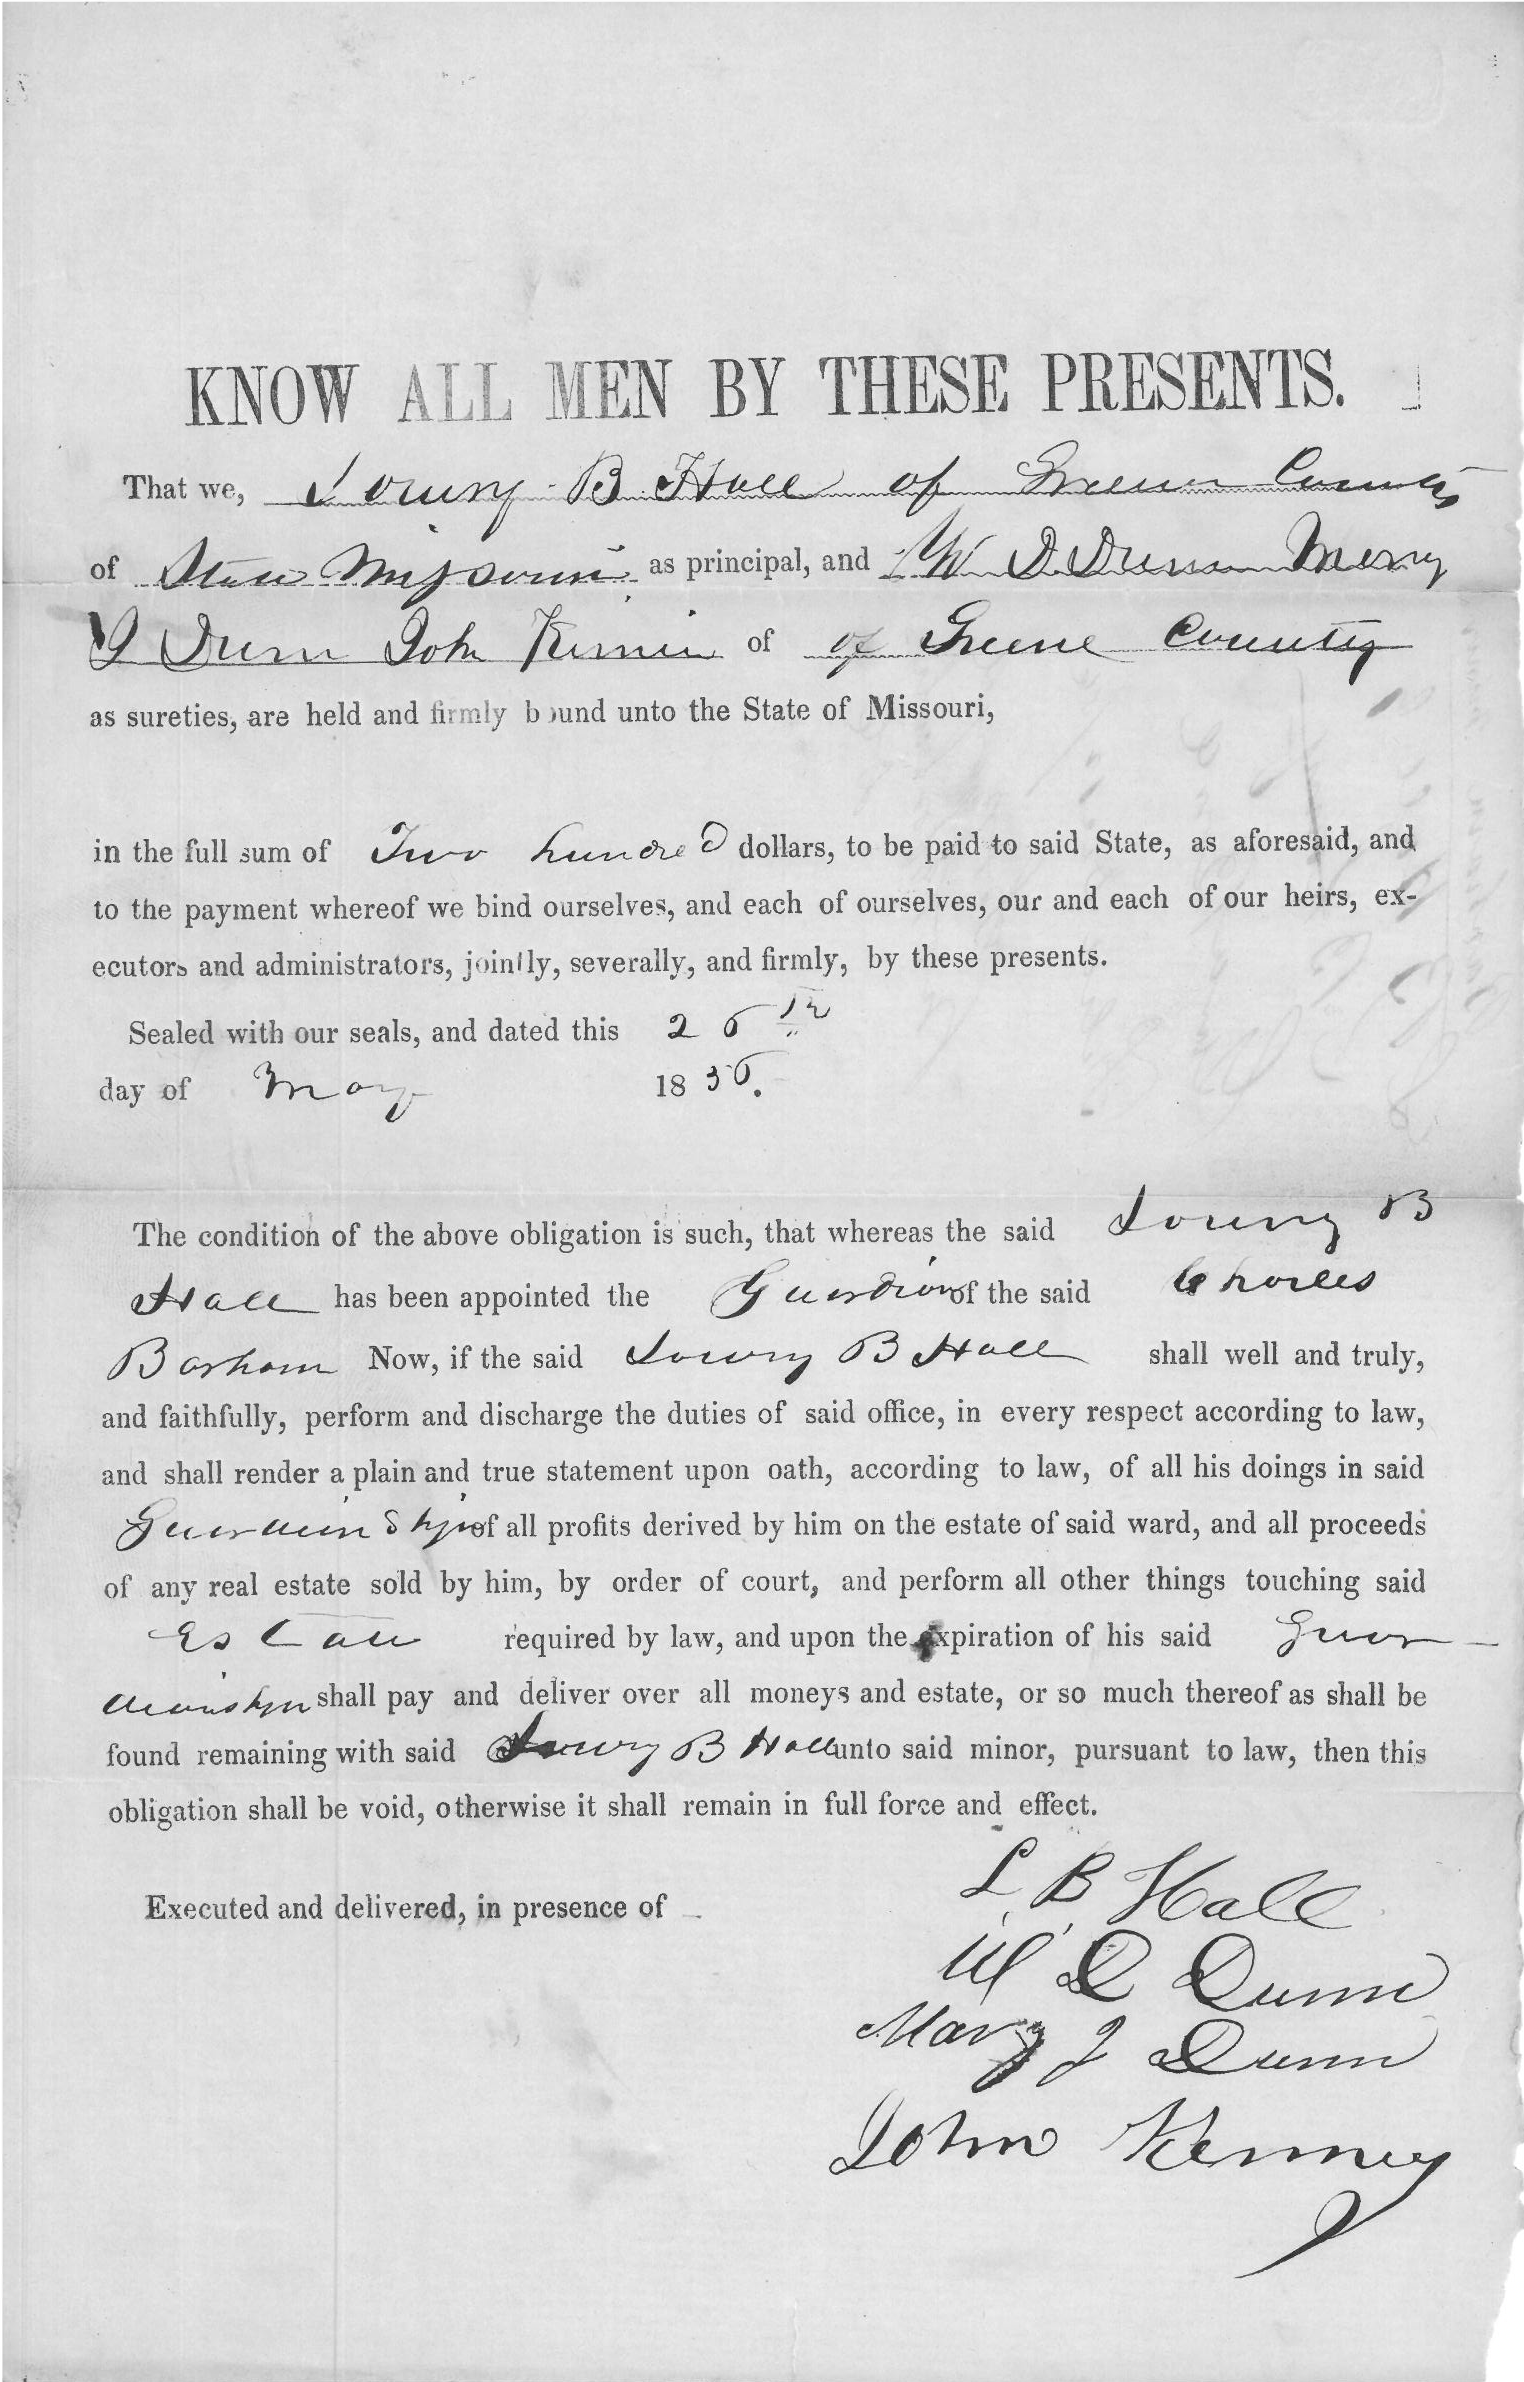 KNOW ALL MEN BY THESE PRESENTS.
That we, Lowry B Hall of Greene County
of State Missouri as principal, and W D Dunn Mary
J Dunn John Kinnie of of Greene County
as sureties, are held and firmly bound unto the State of Missouri,
in the full sum of Two hundred dollars, to be paid to said State, as aforesaid, and
to the payment whereof we bind ourselves, and each of ourselves, our and each of our heirs, ex-
ecutors and administrators, jointly, severally, and firmly, by these presents.
Sealed with our seals, and dated this 26th
day of May 1856.
The condition of the above obligation is such, that whereas the said Lowry B
Hall has been appointed the Guardian of the said Charles
Barham Now, if the said Lowry B Hall shall well and truly,
and faithfully, perform and discharge the duties of said office, in every respect according to law,
and shall render a plain and true statement upon oath, according to law, of all his doings in said
Guardianship of all profits derived by him on the estate of said ward, and all proceeds
of any real estate sold by him, by order of court, and perform all other things touching said
Estate required by law, and upon the expiration of his said Guar-
dianship shall pay and deliver over all moneys and estate, or so much thereof as shall be
found remaining with said Lowry B Hall unto said minor, pursuant to law, then this
obligation shall be void, otherwise it shall remain in full force and effect.
Executed and delivered, in presence of
L. B. Hall
W D Dunn
Mary J Dunn
John Kenney